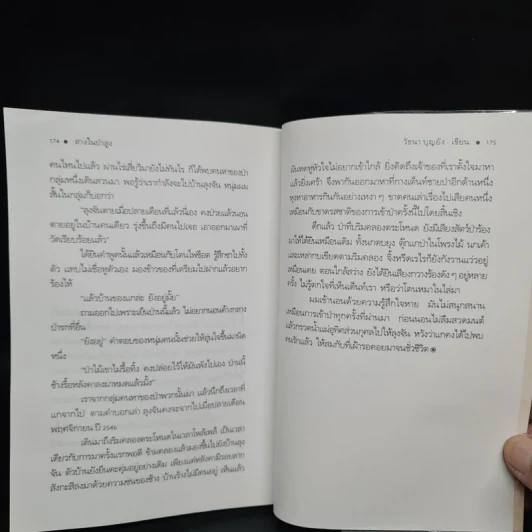 174 ● ดาวในป่าสูง
คนไหนไปแล้ว ผ่านไร่เสี่ยวิมายังไม่ทันไร ก็ได้พบคนหาของป่า
กลุ่มหนึ่งเดินสวนมา พอรู้ว่าเรากำลังจะไปบ้านลุงจัน หนุ่มผม
สั้นในกลุ่มก็บอกว่า
"ลุงจันตายเมื่อปลายเดือนที่แล้วนี่เอง คงป่วยแล้วนอน
ตายอยู่ในบ้านคนเดียว รุ่งขึ้นถึงมีคนไปเจอ เอาออกมาเผาที่
วัดเรียบร้อยแล้ว"
ได้ยินคำพูดนั้นแล้วเหมือนกับโดนไฟช็อต รู้สึกชาไปทั้ง
ตัว แสบไม่เชื่อหูตัวเอง มองข้าวของที่เตรียมไปฝากแล้วอยาก
ร้องไห้
"แล้วบ้านของแกล่ะ ยังอยู่มั้ย"
ถามออกไปเพราะเห็นบ่ายนี้แล้ว ไม่อยากนอนค้างกลาง
ป่ารกที่อื่น
"ยังอยู่" คำตอบของหนุ่มคนนั้นช่วยให้อุ่นใจขึ้นมานิด
หนึ่ง
"ป่าไม้เขาไม่รื้อทิ้ง คงปล่อยไว้ให้มันพังไปเอง ป่านนี้
ช้างรื้อหลังคาลงมาหมดแล้วมั้ง"
เราจากกลุ่มคนหาของป่าพวกนั้นมา แล้วนึกถึงเวลาที่
แกจากไป ตามคำบอกเล่า ลุงจันคงจะจากไปเมื่อปลายเดือน
พฤศจิกายน ปี 2546
เดินมาถึงริมคลองตระโหนดในเวลาโพล้เพล้ เป็นเวลา
เดียวกับการมาครั้งแรกพอดี ข้ามคลองแล้วมองขึ้นไปยังบ้านลุง
จัน ตัวบ้านยังยืนตะคุ่มอยู่อย่างเดิม เพียงแต่หลังคามีรอยฉลาก
สังกะสีลงมาด้วยความซนของช้าง บ้านร้างไม่มีคนอยู่ เห็นแล้ว
วัธนา บุญยัง เขียน ● 175
มันหดหู่หัวใจไม่อยากเข้าใกล้ ยิ่งคิดถึงเจ้าของที่เราตั้งใจมาหา
แล้วยิ่งเศร้า จึงพากันออกมาหาที่กางเต็นท์ชายป่าอีกด้านหนึ่ง
หุงหาอาหารกินกันอย่างเหงา ๆ ขาดคนเล่าเรื่องไปเสียคนหนึ่ง
เหมือนกับขาดรสชาติของการเข้าป่าครั้งนี้ไปโดยสิ้นเชิง
ดึกแล้ว ป่าที่บริมคลองตระโหนด ยังมีเสียงสัตว์ป่าร้อง
มาให้ได้ยินเหมือนเดิม ทั้งนกตบยุง ตุ๊กแกป่าในโพรงไม้ นกเค้า
และเหล่ากบเขียดตามริมคลอง จิ้งหรีดเรไรก็ยังกังวานแว่วอยู่
เหมือนเคย ตอนใกล้สว่าง ยังได้ยินเสียงกวางร้องดัง ๆ อยู่หลาย
ครั้ง ไม่รู้ตกใจที่เห็นเต็นท์เรา หรือว่าโดนหมาในไล่มา
ผมเข้านอนด้วยความรู้สึกใจหาย มันไม่สนุกสนาน
เหมือนการเข้าป่าทุกครั้งที่ผ่านมา ก่อนนอนไม่ลืมสวดมนต์
แล้วกรวดน้ำแผ่อุทิศส่วนกุศลไปให้ลุงจัน หวังว่าแกคงได้ไปพบ
คนรักแล้ว ให้สมกับที่เฝ้ารอคอยมาจนชั่วชีวิต